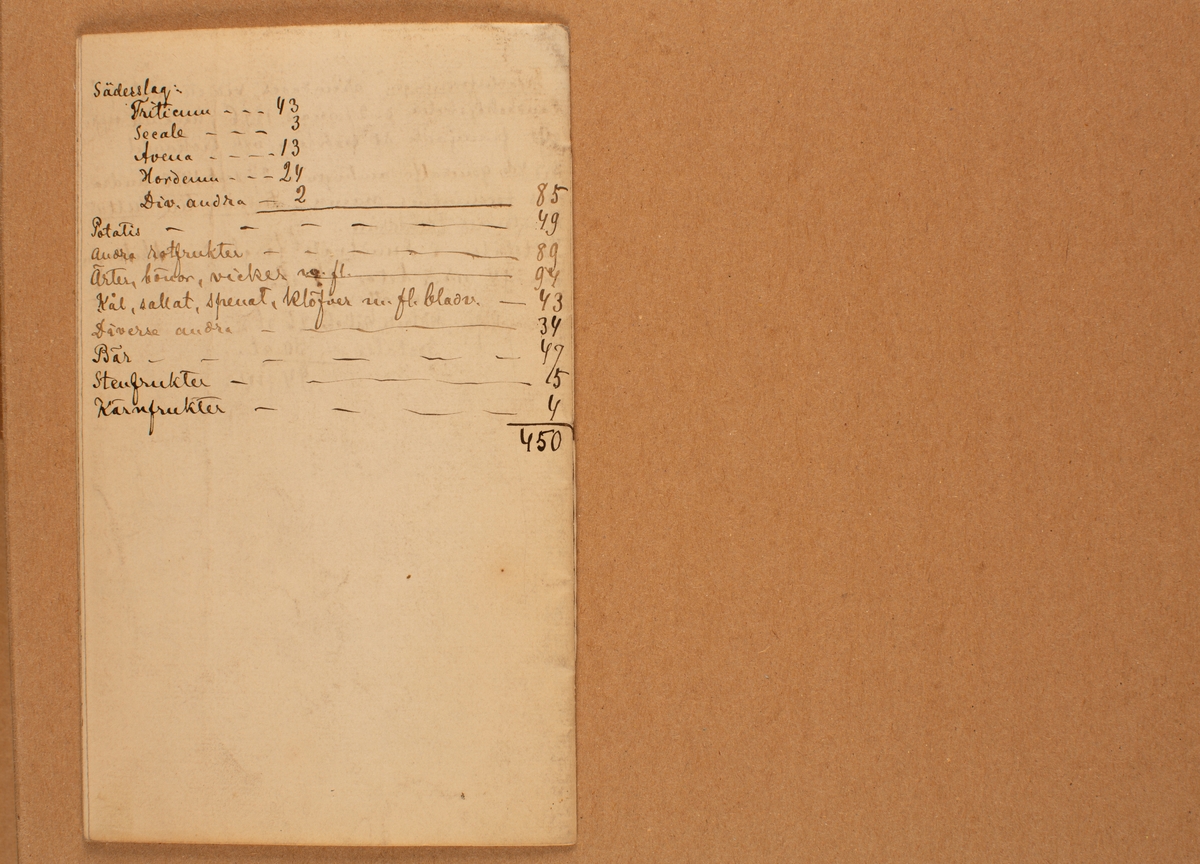 Säderslag:
Triticum - - - 43
Secale - - - 3
Avena - - - - 13
Hordeum - - - 24
Div. andra — 2 85
Potatis — — — — — — 49
Andra rotfrukter — — — — — 89
Ärter, bönor, vicker m. fl. — 94
Kål, sallat, spenat, klöfver m. fl. bladv. — 43
Diverse andra — — — — 34
Bär — — — — — — 47
Stenfrukter — — — — 5
Kärnfrukter — — — — 4
450